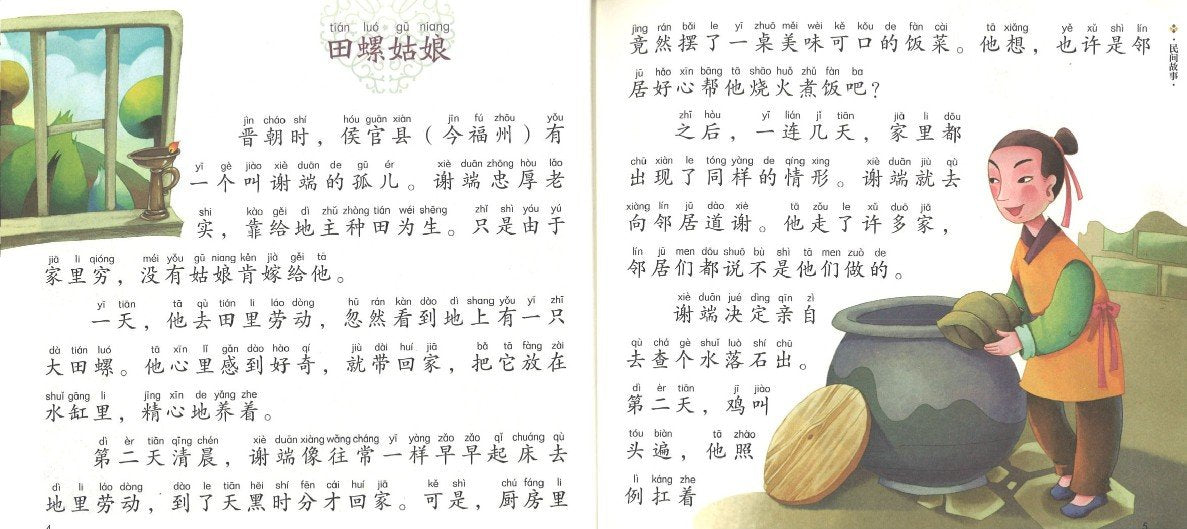 tián luó gū niang
田螺姑娘
jìn cháo shí hóu guān xiàn jīn fú zhōu yǒu
晋朝时，侯官县（今福州）有
yī gè jiào xiè duān de gū ér xiè duān zhōng hòu lǎo
一个叫谢端的孤儿。谢端忠厚老
shi kào gěi dì zhǔ zhòng tián wéi shēng zhǐ shì yóu yú
实，靠给地主种田为生。只是由于
jiā li qióng méi yǒu gū niang kěn jià gěi tā
家里穷，没有姑娘肯嫁给他。
yī tiān tā qù tián li láo dòng hū rán kàn dào dì shang yǒu yī zhī
一天，他去田里劳动，忽然看到地上有一只
dà tián luó tā xīn lǐ gǎn dào hào qí jiù dài huí jiā bǎ tā fàng zài
大田螺。他心里感到好奇，就带回家，把它放在
shuǐ gāng li jīng xīn de yǎng zhe
水缸里，精心地养着。
dì èr tiān qīng chén xiè duān xiàng wǎng cháng yī yàng zǎo zǎo qǐ chuáng qù
第二天清晨，谢端像往常一样早早起床去
dì li láo dòng dào le tiān hēi shí fēn cái huí jiā kě shì chú fáng li
地里劳动，到了天黑时分才回家。可是，厨房里
4
jìng rán bǎi le yī zhuō měi wèi kě kǒu de fàn cài tā xiǎng yě xǔ shì lín
竟然摆了一桌美味可口的饭菜。他想，也许是邻
jū hǎo xīn bāng tā shāo huǒ zhǔ fàn ba
居好心帮他烧火煮饭吧？
zhī hòu yī lián jǐ tiān jiā li dōu
之后，一连几天，家里都
chū xiàn le tóng yàng de qíng xing xiè duān jiù qù
出现了同样的情形。谢端就去
xiàng lín jū dào xiè tā zǒu le xǔ duō jiā
向邻居道谢。他走了许多家，
lín jū men dōu shuō bù shì tā men zuò de
邻居们都说不是他们做的。
xiè duān jué dìng qīn zì
谢端决定亲自
qù chá gè shuǐ luò shí chū
去查个水落石出。
dì èr tiān jī jiào
第二天，鸡叫
tóu biàn tā zhào
头遍，他照
lì káng zhe
例扛着
·民间故事·
5